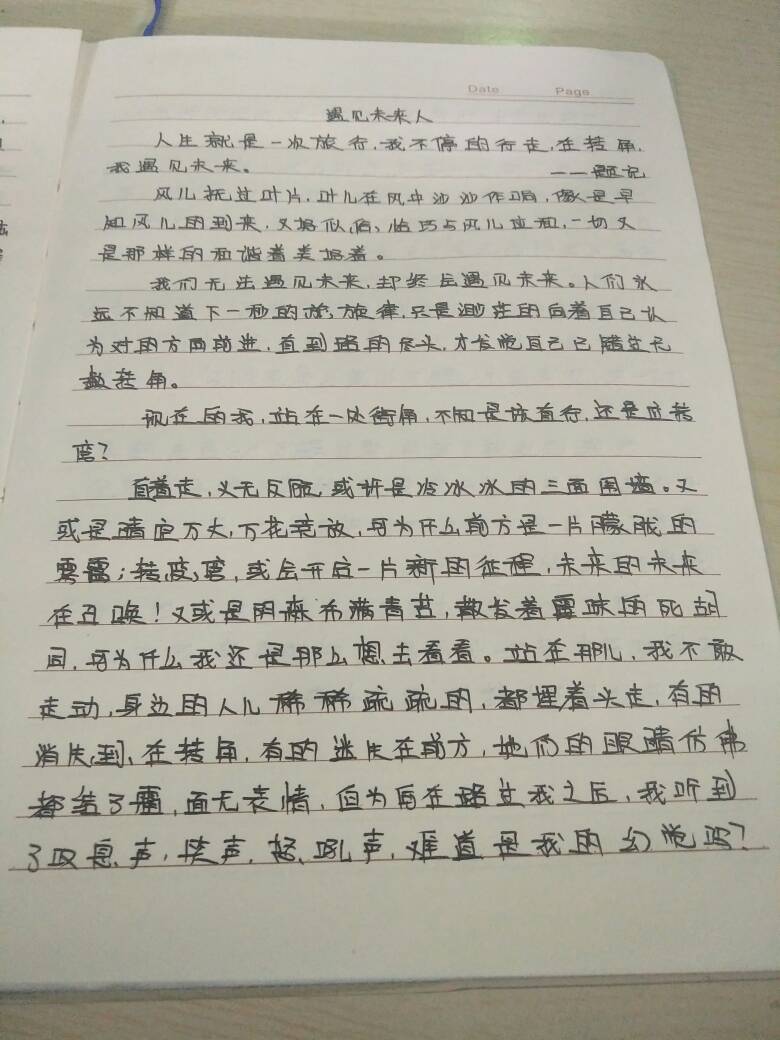 Date Page
遇见未来人
人生就是一次旅行,我不停的行走,在转角,
我遇见未来。 ——题记
风儿抚过叶片,叶儿在风中沙沙作响,像是早
知风儿的到来,又好似偶,恰巧与风儿应和,一切又
是那样的和谐着美好着。
我们无法遇见未来,却终会遇见未来。人们永
远不知道下一秒的旋律,只是渺茫的向着自己认
为对的方向前进,直到路的尽头,才发觉自己已错过无
数转角。
现在的我,站在一处街角,不知是该直行,还是应转
弯?
直着走,义无反顾,或许是冷冰冰的三面围墙。又
或是晴空万丈,万花竞放,可为什么前方是一片朦胧的
雾霭;转,弯,或会开启一片新的征程,未来的未来
在召唤!又或是阴森布满青苔,散发着霉味的死胡
同,可为什么我还是那么想去看看。站在那儿,我不敢
走动,身边的人儿稀稀疏疏的,都埋着头走,有的
消失,到,在转角,有的迷失在前方,他们的眼睛仿佛
都结了霜,面无表情,但为何在路过我之后,我听到
了叹息声,笑声,怒吼声,难道是我的幻觉吗?